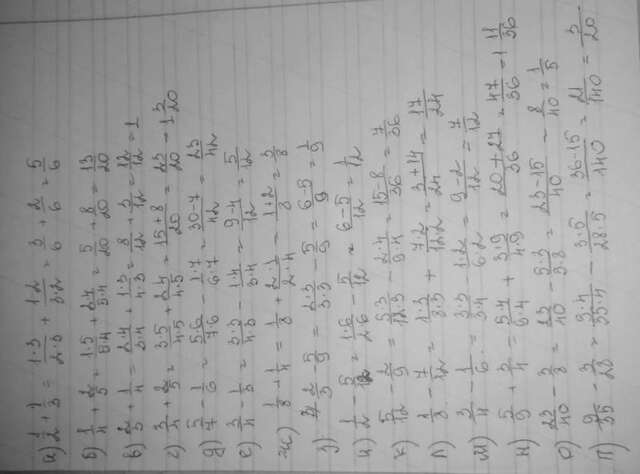 а) 1/2 + 1/3 = 1·3/2·3 + 1·2/3·2 = 3/6 + 2/6 = 5/6
б) 1/4 + 2/5 = 1·5/5·4 + 2·4/5·4 = 5/20 + 8/20 = 13/20
в) 2/3 + 1/4 = 2·4/3·4 + 1·3/4·3 = 8/12 + 3/12 = 12/12 = 1
г) 3/4 + 2/5 = 3·5/4·5 + 2·4/4·5 = 15+8/20 = 23/20 = 1 3/20
д) 5/7 - 1/6 = 5·6/7·6 - 1·7/6·7 = 30-7/42 = 23/42
е) 3/4 - 1/3 = 3·3/4·3 - 1·4/3·4 = 9-4/12 = 5/12
ж) 1/8 + 1/4 = 1/8 + 2·1/2·4 = 1+2/8 = 3/8
з) 2/3 - 5/9 = 2·3/3·3 - 5/9 = 6-5/9 = 1/9
и) 1/2 - 5/12 = 1·6/2·6 - 5/12 = 6-5/12 = 1/12
к) 5/12 - 2/9 = 5·3/12·3 - 2·4/9·4 = 15-8/36 = 7/36
л) 1/8 - 7/12 = 1·3/8·3 + 7·2/12·2 = 3+14/24 = 17/24
м) 3/4 - 1/6 = 3·3/3·4 - 1·2/6·2 = 9-2/12 = 7/12
н) 5/9 + 3/4 = 5·4/9·4 + 3·9/4·9 = 20+27/36 = 47/36 = 1 11/36
о) 23/40 - 3/8 = 23/40 - 5·3/5·8 = 23-15/40 = 8/40 = 1/5
п) 9/35 - 3/28 = 9·4/35·4 - 3·5/28·5 = 36-15/140 = 21/140 = 3/20